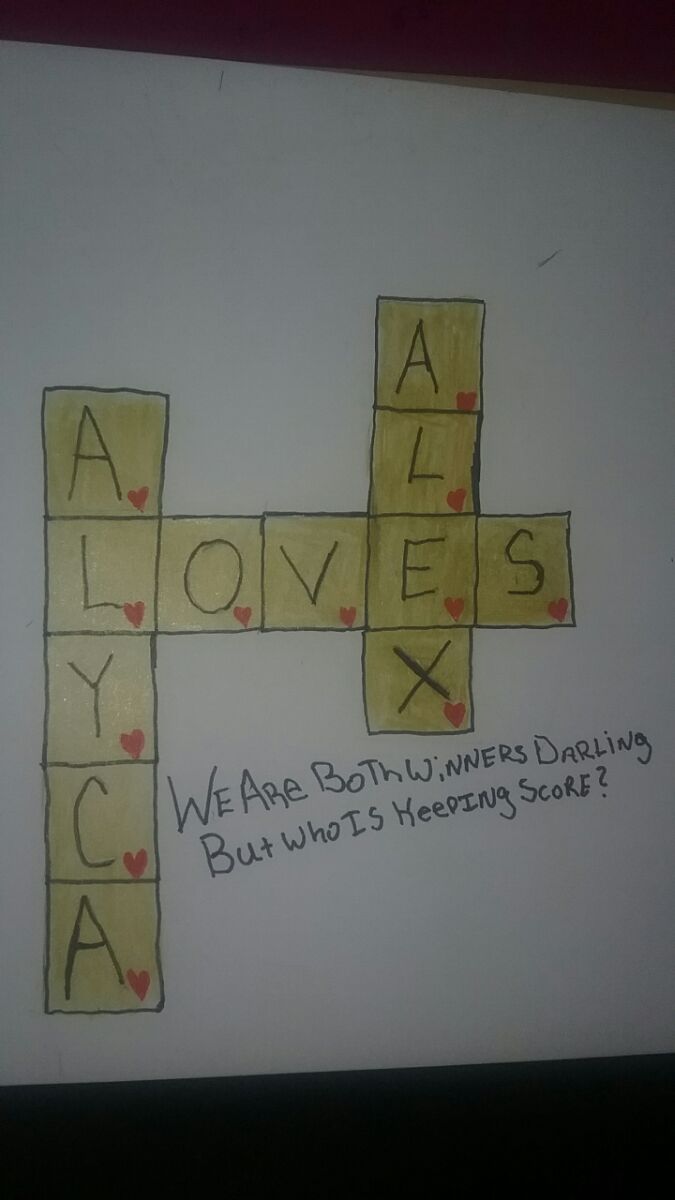 ALYCA
LOVES
ALEX
WE ARE BOTH WiNNERS DARLiNg
But Who IS KeePINg ScoRE?